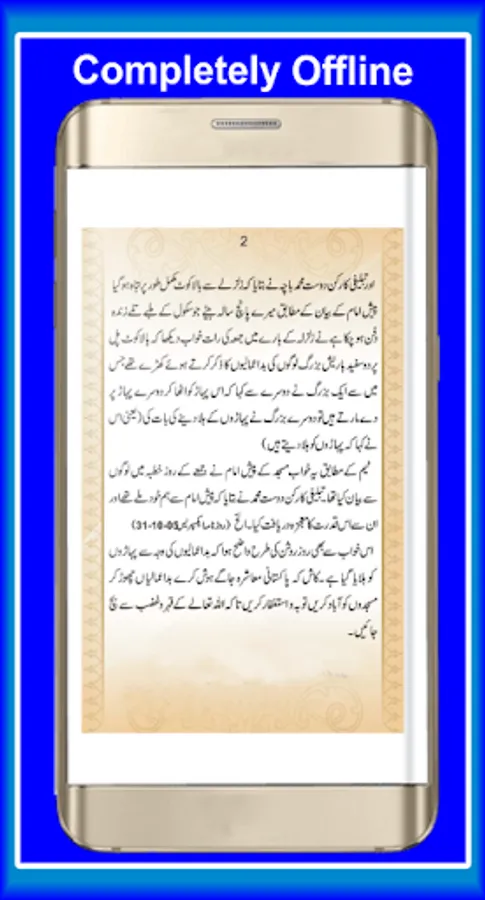 Completely Offline
2
اور تبلیغی کارکن دوست محمد باچہ نے بتایا کہ زلزلے سے بالا کوٹ مکمل طور پر تباہ ہو گیا
پیش امام کے بیان کے مطابق میرے پانچ سالہ بیٹے جو سکول کے ملبے تلے زندہ
دفن ہو چکا ہے نے زلزلہ کے بارے میں جمعہ کی رات خواب دیکھا کہ بالا کوٹ پل
پر دو سفید باریش بزرگ لوگوں کی بداعمالیوں کا ذکر کرتے ہوئے کھڑے تھے جس
میں سے ایک بزرگ نے دوسرے سے کہا کہ اس پہاڑ کو اٹھا کر دوسرے پہاڑ پر
دے مارتے ہیں تو دوسرے بزرگ نے پہاڑوں کے ہلا دینے کی بات کی (یعنی اس
نے کہا کہ پہاڑوں کو ہلا دیتے ہیں)
ٹیم کے مطابق یہ خواب مسجد کے پیش امام نے جمعے کے روز خطبہ میں لوگوں
سے بیان کیا تھا۔ تبلیغی کارکن دوست محمد نے بتایا کہ پیش امام سے ہم خود ملے تھے اور
ان سے اس قدرت کا معجزہ دریافت کیا۔ الخ (روزنامہ ایکسپریس 31-10-05)
اس خواب سے بھی روز روشن کی طرح واضح ہوا کہ بداعمالیوں کی وجہ سے پہاڑوں
کو ہلایا گیا ہے۔ کاش کہ پاکستانی معاشرہ جاگے ہوش کرے بداعمالیاں چھوڑ کر
مسجدوں کو آباد کریں توبہ و استغفار کریں تاکہ اللہ تعالے کے قہر و غضب سے بچ
جائیں۔